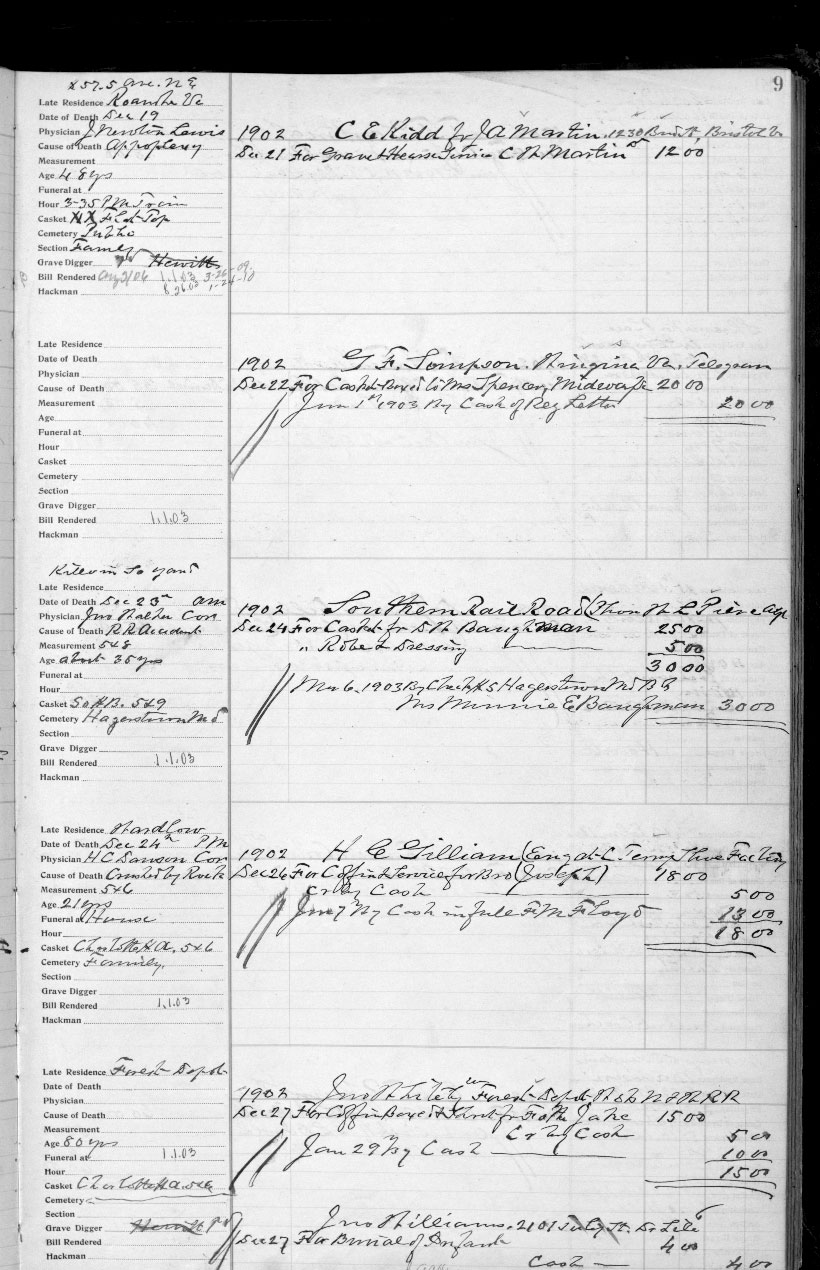 9
Ave. N.E.
Late Residence Roanoke Va
Date of Death Dec 19
Physician J Newton Lewis
Cause of Death Appoplexy
Measurement
Age 48 yrs
Funeral at
Hour 3-35 PM Train
Casket XX Flat Top
Cemetery Public
Section Family
Grave Digger Hewitt
Bill Rendered Aug 2/06 1.1.03
Hackman
1902 C E Kidd for J A Martin, 1230 Bristol Va
Dec 21 For Grave & Hearse Service C H Martin 12 00
Late Residence
Date of Death
Physician
Cause of Death
Measurement
Age
Funeral at
Hour
Casket
Cemetery
Section
Grave Digger
Bill Rendered 1.1.03
Hackman
1902 G. F. Simpson. Va. Telegram
Dec 22 For Casket Boxed to Mrs Spencer, Midway 20 00
Jan 1st 1903 By Cash of Reg Letter 20 00
Killed in So yard
Late Residence
Date of Death Dec 23rd am
Physician Jno Walker Cor
Cause of Death R R Accident
Measurement 5x8
Age about 35 yrs
Funeral at
Hour
Casket So H B. 5x9
Cemetery Hagerstown Md
Section
Grave Digger
Bill Rendered 1.1.03
Hackman
1902 Southern Rail Road (Thom H L Pierce Agt
Dec 24 For Casket for D H Baughman 25 00
" Robe & Dressing 5 00
30 00
Mar 6, 1903 By Check Hagerstown Md
Mrs Minnie E Baughman 30 00
Late Residence
Date of Death Dec 24th PM
Physician H C Dawson Cor
Cause of Death Crushed by Rock
Measurement 5x6
Age 21 yrs
Funeral at House
Hour
Casket Charlotte H A. 5x6
Cemetery Family
Section
Grave Digger
Bill Rendered 1.1.03
Hackman
1902 H C Gilliam
Dec 26 For Coffin & Service for Bro (Joseph) 18 00
Cr By Cash 5 00
Jan 7 By Cash in full F. M. Floyd 13 00
18 00
Late Residence Forest Depot
Date of Death
Physician
Cause of Death
Measurement
Age 80 yrs
Funeral at 1.1.03
Hour
Casket Charlotte H A. 5x6
Cemetery
Section
Grave Digger Hewitt
Bill Rendered
Hackman
1902 Jno Forest Depot N & W R R
Dec 27 For Coffin Boxed & Shirt for Father Jake 15 00
Cr By Cash 5 00
Jan 29 By Cash 10 00
15 00
Jno Williams. 2101
Dec 27 For Burial of Infant 4 00
Cash 4 00